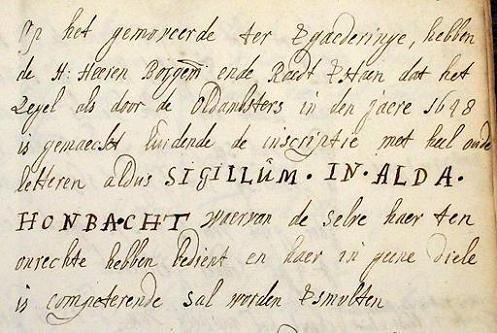 Op het gemoveerde ter Vgaederinge, hebben
de H: Heeren Borgemrn ende Raedt Vstaen dat het
Zegel als door de Oldambsters in den jaere 1648
is gemaeckt luidende de inscriptie met heel oude
letteren aldus SIGILLÛM · IN · ALDA ·
HONBACHT waervan de selve haer ten
onrechte hebben bedient en haer in geene diele
is competerende sal worden Vsmolten